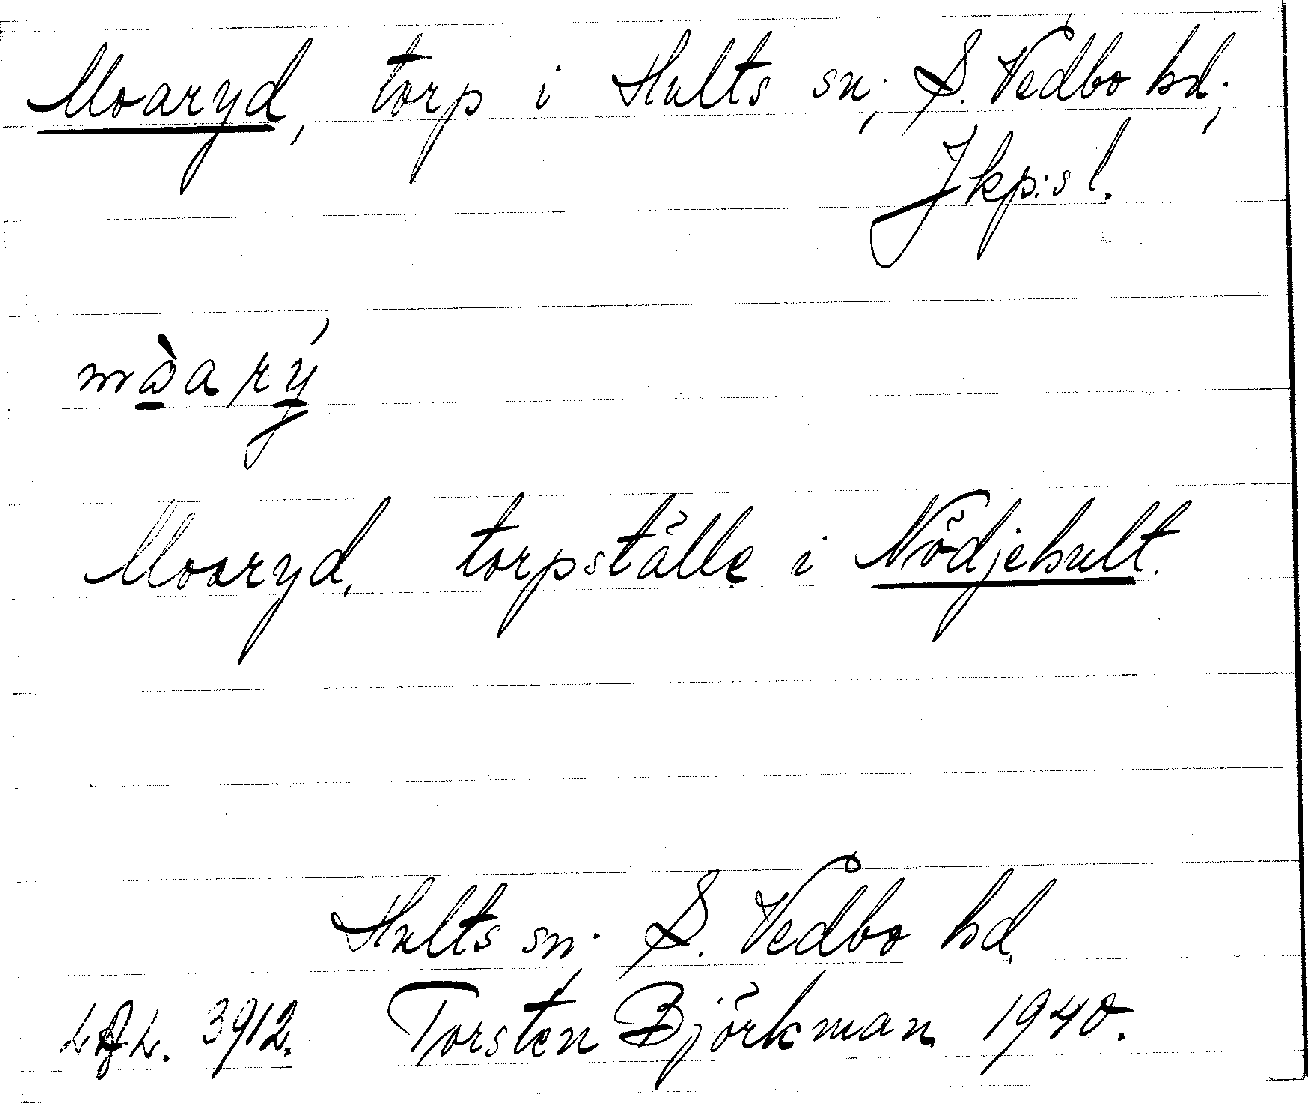 Moaryd, torp i Hults sn; S. Vedbo hd;
Jkp:s l.
Moaryd. torpställe i Nödjehult.
Hults sn. S. Vedbo hd.
3912. Torsten Björkman 1940.